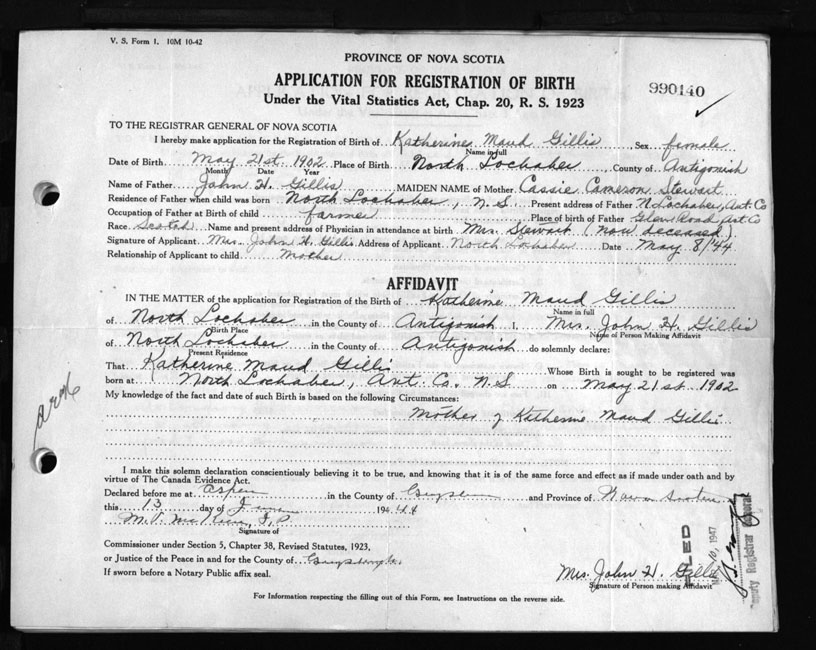 V. S. Form 1. 10M 10-42
PROVINCE OF NOVA SCOTIA
APPLICATION FOR REGISTRATION OF BIRTH
990140
Under the Vital Statistics Act, Chap. 20, R. S. 1923
TO THE REGISTRAR GENERAL OF NOVA SCOTIA
I hereby make application for the Registration of Birth of Katherine Maud Gillis Sex female
Name in full
Date of Birth May 21st 1902 Place of Birth North Lochaber County of Antigonish
Month Date Year
Name of Father John H. Gillis MAIDEN NAME of Mother Cassie Cameron Stewart
Residence of Father when child was born North Lochaber, N.S. Present address of Father N Lochaber, Ant. Co
Occupation of Father at Birth of child farmer Place of birth of Father Glen Road Ant Co
Race Scotch Name and present address of Physician in attendance at birth Mrs. Stewart (now deceased)
Signature of Applicant Mrs. John H. Gillis Address of Applicant North Lochaber Date May 8/44
Relationship of Applicant to child Mother
AFFIDAVIT
IN THE MATTER of the application for Registration of the Birth of Katherine Maud Gillis
Name in full
of North Lochaber in the County of Antigonish I, Mrs. John H. Gillis
Birth Place Name of Person Making Affidavit
of North Lochaber in the County of Antigonish do solemnly declare:
Present Residence
That Katherine Maud Gillis Whose Birth is sought to be registered was
born at North Lochaber, Ant. Co. N.S. on May 21st 1902
My knowledge of the fact and date of such Birth is based on the following Circumstances:
Mother of Katherine Maud Gillis
I make this solemn declaration conscientiously believing it to be true, and knowing that it is of the same force and effect as if made under oath and by
virtue of The Canada Evidence Act.
Declared before me at Aspen in the County of and Province of Nova Scotia
this 13 day of 1944
J.P.
Signature of
Commissioner under Section 5, Chapter 38, Revised Statutes, 1923,
or Justice of the Peace in and for the County of
If sworn before a Notary Public affix seal.
Mrs. John H. Gillis
Signature of Person making Affidavit
FILED
10, 1947
Deputy Registrar General
For Information respecting the filling out of this Form, see Instructions on the reverse side.